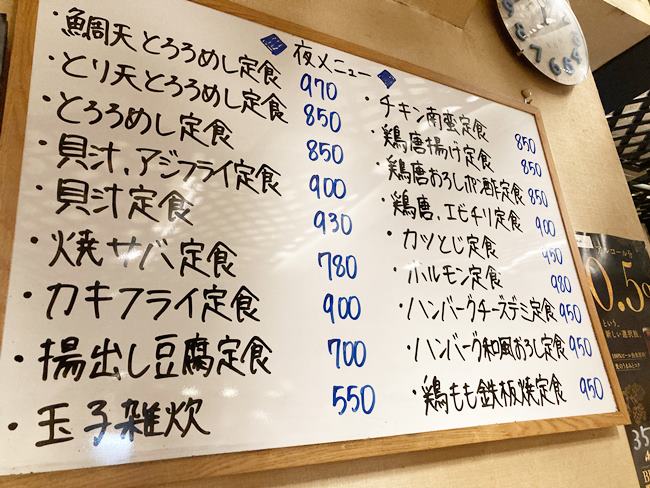 夜メニュー
・鯛天とろろめし定食 970
・とり天とろろめし定食 850
・とろろめし定食 850
・貝汁、アジフライ定食 900
・貝汁定食 930
・焼サバ定食 780
・カキフライ定食 900
・揚出し豆腐定食 700
・玉子雑炊 550
・チキン南蛮定食 850
・鶏唐揚げ定食 850
・鶏唐おろしポン酢定食 850
・鶏唐、エビチリ定食 900
・カツとじ定食 950
・ホルモン定食 980
・ハンバーグチーズデミ定食 950
・ハンバーグ和風おろし定食 950
・鶏もも鉄板焼定食 950
0.5
という、